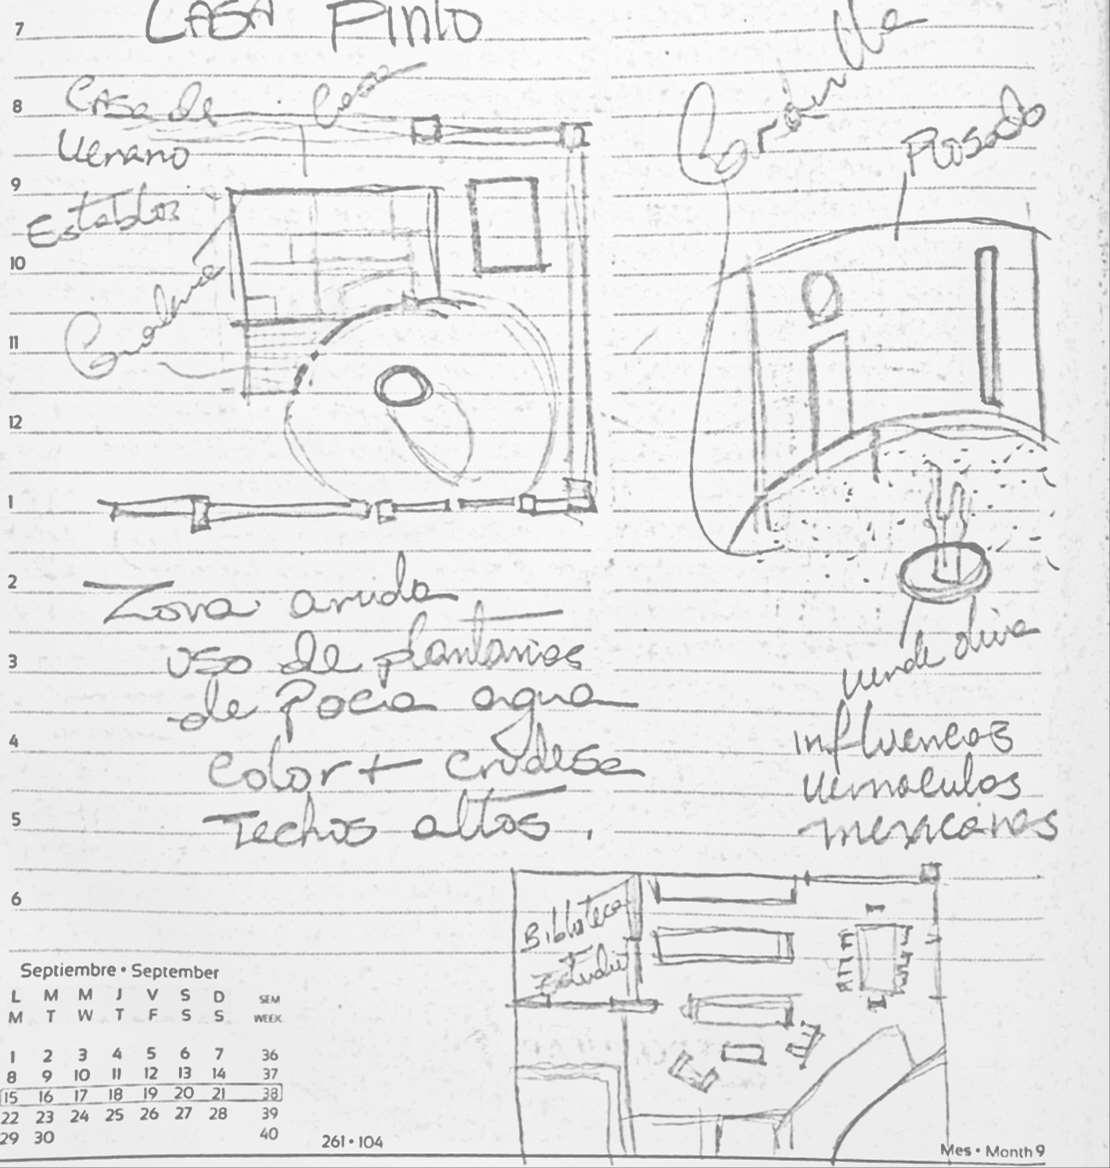 CASA PINTO
7
8
9
10
11
12
1
2
3
4
5
6
Casa de
Verano
Establos
Plosado
Zona arida
uso de plantanios
de Poca agua
color + crudesa
Techos altos.
verde oliva
influencias
vernaculos
mexicanos
Biblioteca
Estudio
Septiembre • September
L M M J V S D SEM
M T W T F S S WEEK
1 2 3 4 5 6 7 36
8 9 10 11 12 13 14 37
15 16 17 18 19 20 21 38
22 23 24 25 26 27 28 39
29 30 40
261 • 104
Mes • Month 9